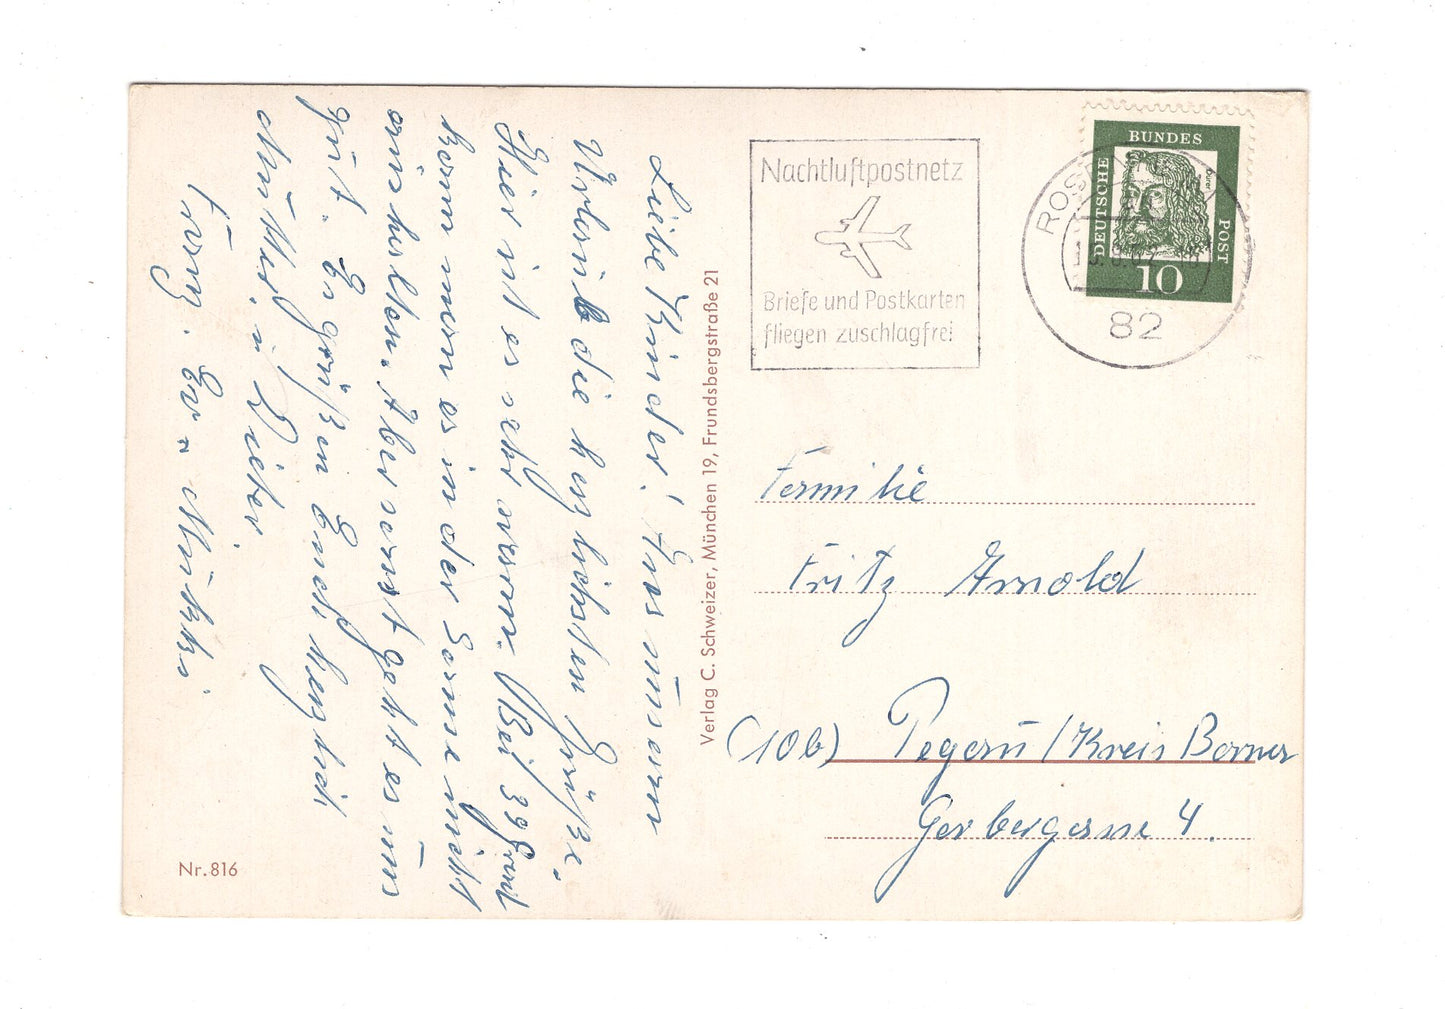 Liebe Kinder! Aus unserm
Urlaub die herzlichsten Grüße.
Hier ist es sehr warm. Bei 39 Grad
kann man es in der Sonne nicht
aushalten. Aber sonst geht es uns
gut. Es grüßen Euch herzlich
Mutter, u. Dieter
Franz. Ew
Nr. 816
Verlag C. Schweizer, München 19, Frundsbergstraße 21
Nachtluftpostnetz
Briefe und Postkarten
fliegen zuschlagfrei
ROSENHEIM
82
DEUTSCHE BUNDES POST
Dürer
10
Familie
Fritz Arnold
(10b) Pegau / Kreis Borna
Gerbergasse 4.